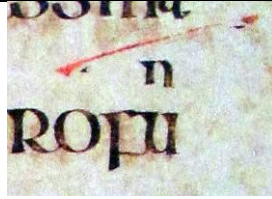 n
ROFU